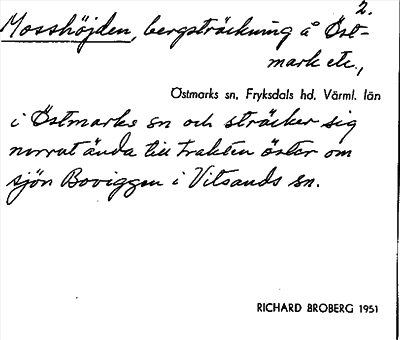 2.
Mosshöjden, bergsträckning å Öst-
mark etc.,
Östmarks sn, Fryksdals hd, Värml. län
i Östmarks sn och sträcker sig
norrut ända till trakten öster om
sjön Boviggen i Vitsands sn.
RICHARD BROBERG 1951